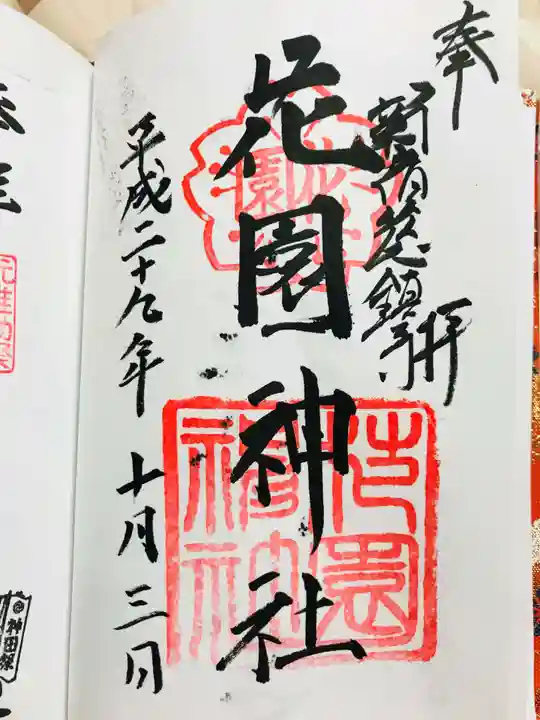 奉拝
新宿総鎮守
花園神社
平成二十九年 十月三日
花園
神田祭